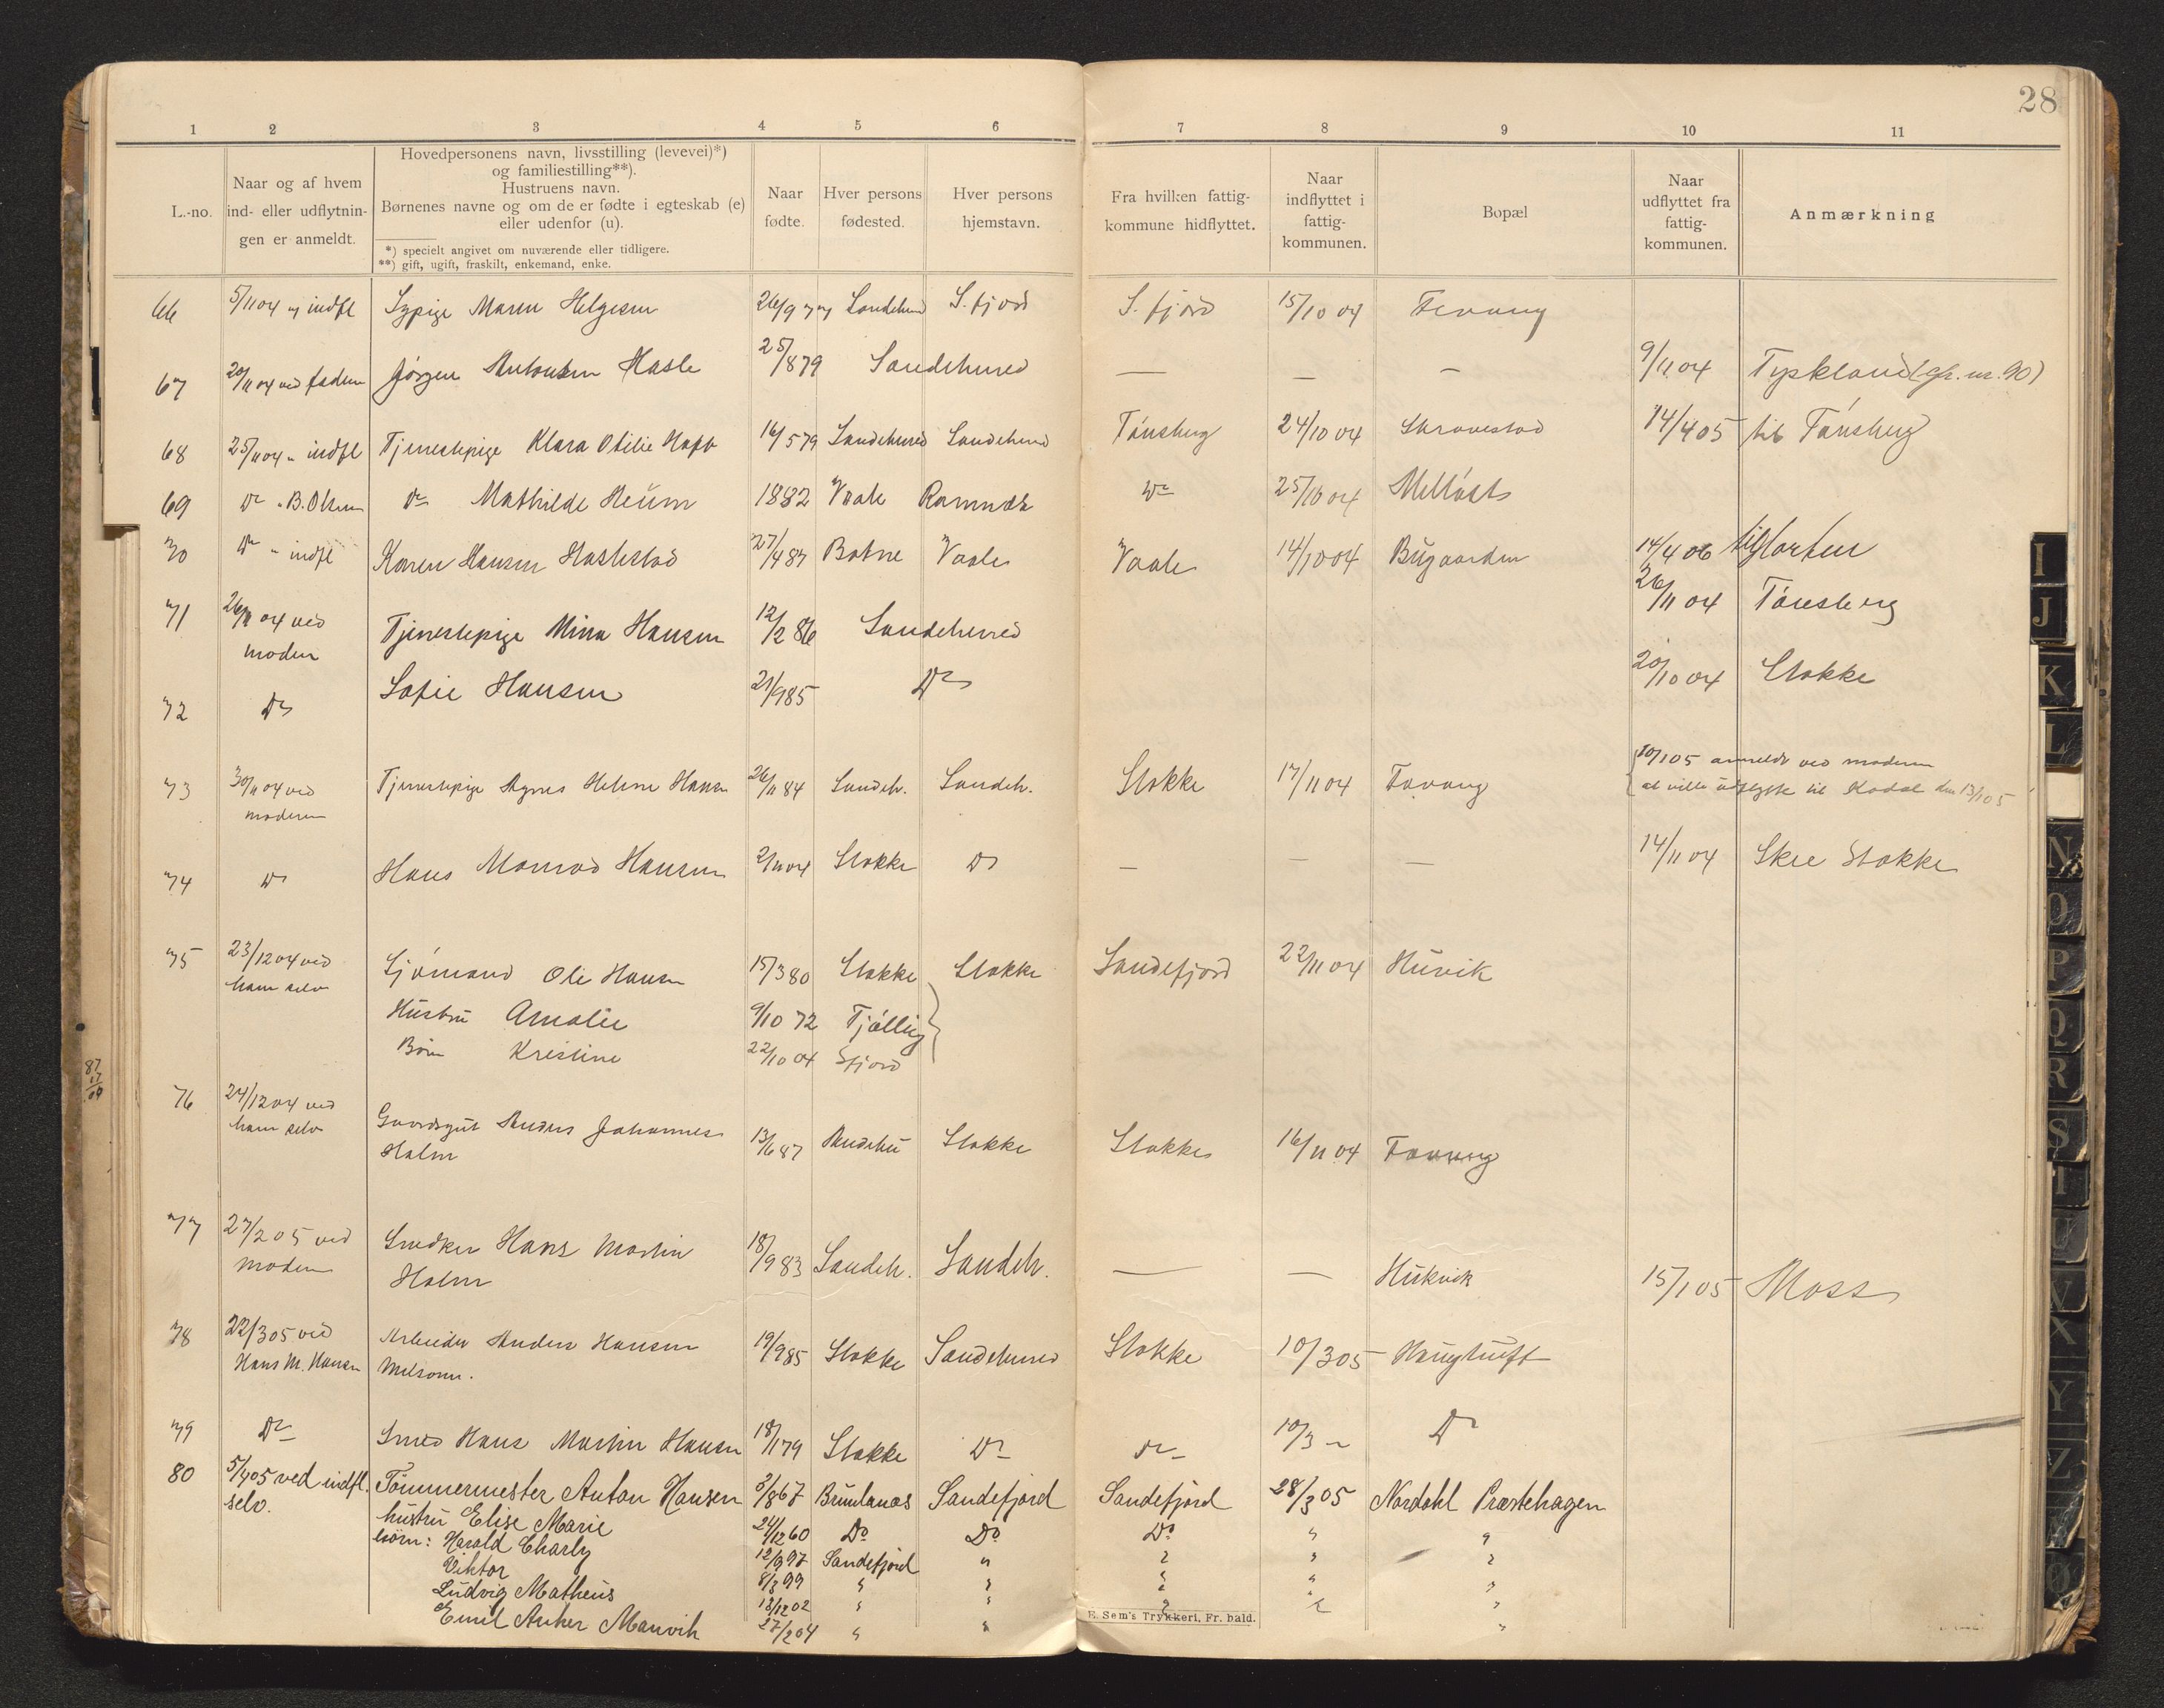 28
1 2 3 4 5 6 7 8 9 10 11
L.-no.
Naar og af hvem
ind- eller udflytnin-
gen er anmeldt.
Hovedpersonens navn, livsstilling (levevei)*)
og familiestilling**).
Hustruens navn.
Børnenes navne og om de er fødte i egteskab (e)
eller udenfor (u).
*) specielt angivet om nuværende eller tidligere.
**) gift, ugift, fraskilt, enkemand, enke.
Naar
fødte.
Hver persons
fødested.
Hver persons
hjemstavn.
Fra hvilken fattig-
kommune hidflyttet.
Naar
indflyttet i
fattig-
kommunen.
Bopæl
Naar
udflyttet fra
fattig-
kommunen.
Anmærkning
66 5/11 04 indfl Sypige Maren Helgesen 26/9 77 Sandeherred S. fjord S. fjord 15/10 04 Fevang
67 20/11 04 ved faderen Jørgen Antonsen Hasle 25/8 79 Sandeherred — — — 9/11 04 Tyskland (cfr. nr. 90)
68 25/11 04 " indfl Tjenestepige Klara Otilie 16/5 79 Sandeherred Sandeherred Tønsberg 24/10 04 Skravestad 14/4 05 til Tønsberg
69 Do " B. Olsen Do Mathilde Heum 1882 Vaale Ramnæs Do 25/10 04 Melløst
70 Do " indfl Karen Hansen Haslestad 27/4 87 Botne Vaale Vaale 14/10 04 Bugaarden 14/4 06 til Horten
71 26/11 04 ved Tjenestepige Mina Hansen 12/2 86 Sandeherred 26/11 04 Tønsberg
moderen
72 Do Sofie Hansen 21/9 85 Do 20/10 04 Stokke
73 30/11 04 ved Tjenestepige Agnes Helene Hansen 26/11 84 Sandeh. Sandeh. Stokke 17/11 04 Fevang 10/1 05 anmeldt ved moderen
moderen at ville udflytte til Kodal den 13/1 05
74 Do Hans Monrad Hansen 2/11 04 Stokke Do — — — 14/11 04 Skee Stokke
75 23/12 04 ved Sjømand Ole Hansen 15/3 80 Stokke Stokke Sandefjord 22/11 04 Huvik
ham selv
Hustru Amalie 9/10 72 Tjølling
Børn Kristine 22/10 04 Sfjord
76 24/12 04 ved Gaardsgut Anders Johannes 13/6 87 Stokke Stokke 16/11 04 Fevang
ham selv Holm
77 27/2 05 ved Snedker Hans Martin 18/9 83 Sandeh. Sandeh. — — Hukvik 15/1 05 Moss
moderen Holm
78 22/3 05 ved Arbeider Anders Hansen 19/9 85 Stokke Sandeherred Stokke 10/3 05 Haugtuft
Hans M. Hansen Melsom.
79 Do Smed Hans Martin Hansen 18/1 79 Stokke Do Do 10/3 " Do
80 5/4 05 ved indfl. Tømmermester Anton Hansen 3/8 67 Brunlanæs Sandefjord Sandefjord 28/3 05 Nordahl Præstehagen
selv. hustru Elise Marie 24/12 60 Do Do Do " "
børn: Harald Charly 12/9 97 Sandefjord " " " "
Viktor 8/3 99 " " " " "
Ludvig Matheus 18/12 02 " " " " "
Emil Anker Manvik 27/2 04 " " "
E. Sem's Trykkeri, Fr. hald.
87
17
I
J
K
L
N
O
P
Q
R
S
T
U
V
X
Y
Z
Ø